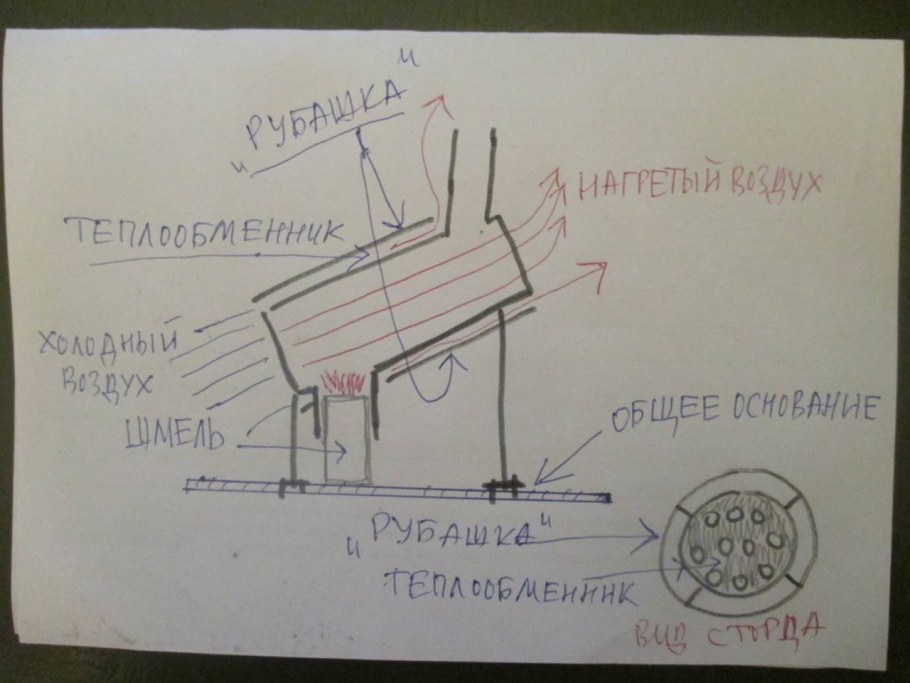 "РУБАШКА"
ТЕПЛООБМЕННИК
НАГРЕТЫЙ ВОЗДУХ
ХОЛОДНЫЙ
ВОЗДУХ
ШМЕЛЬ
ОБЩЕЕ ОСНОВАНИЕ
"РУБАШКА"
ТЕПЛООБМЕННИК
ВИД СТОРДА